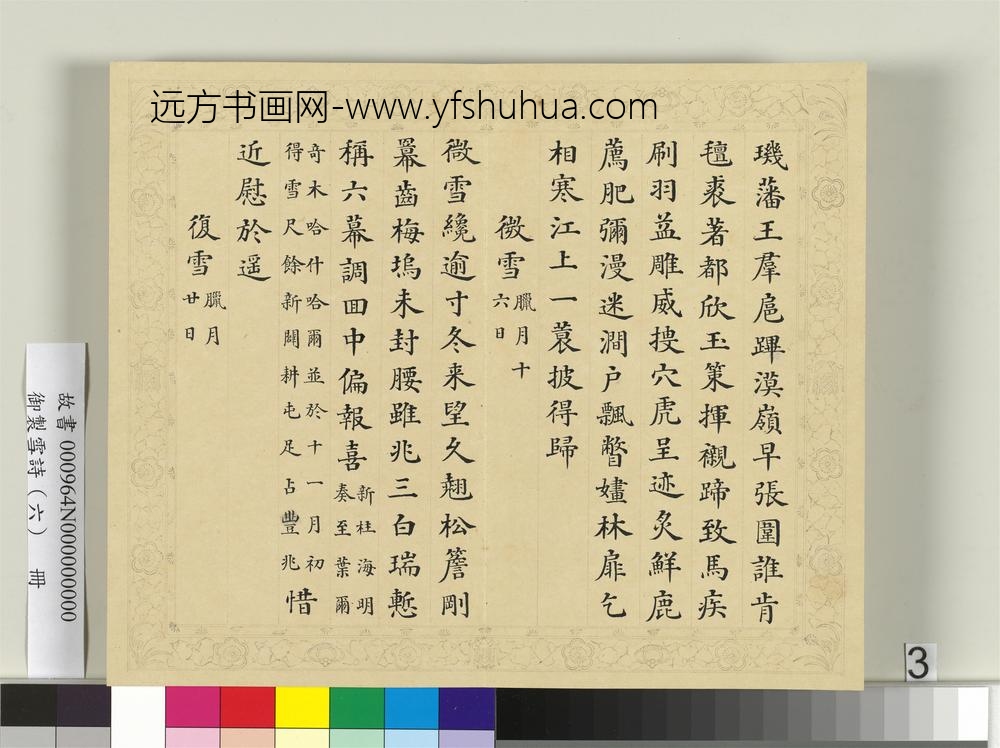 远方书画网-www.yfshuhua.com
璣藩王羣扈蹕漠嶺早張圍誰肯
氊裘著都欣玉策揮襯蹄致馬疾
刷羽益雕威捜穴虎呈迹炙鮮鹿
薦肥彌漫迷澗户飄瞥嫿林扉乞
相寒江上一蓑披得歸
微雪臘月十六日
微雪纔逾寸冬来望久翹松簷剛
冪齒梅塢未封腰雖兆三白瑞慙
稱六幕調回中偏報喜新柱海明奏至葉爾
奇木哈什哈爾並於十一月初得雪尺餘新闢耕屯足占豐兆惜
近慰於遥
復雪臘月廿日
故書 000964N000000000
御製雪詩（六） 冊
3